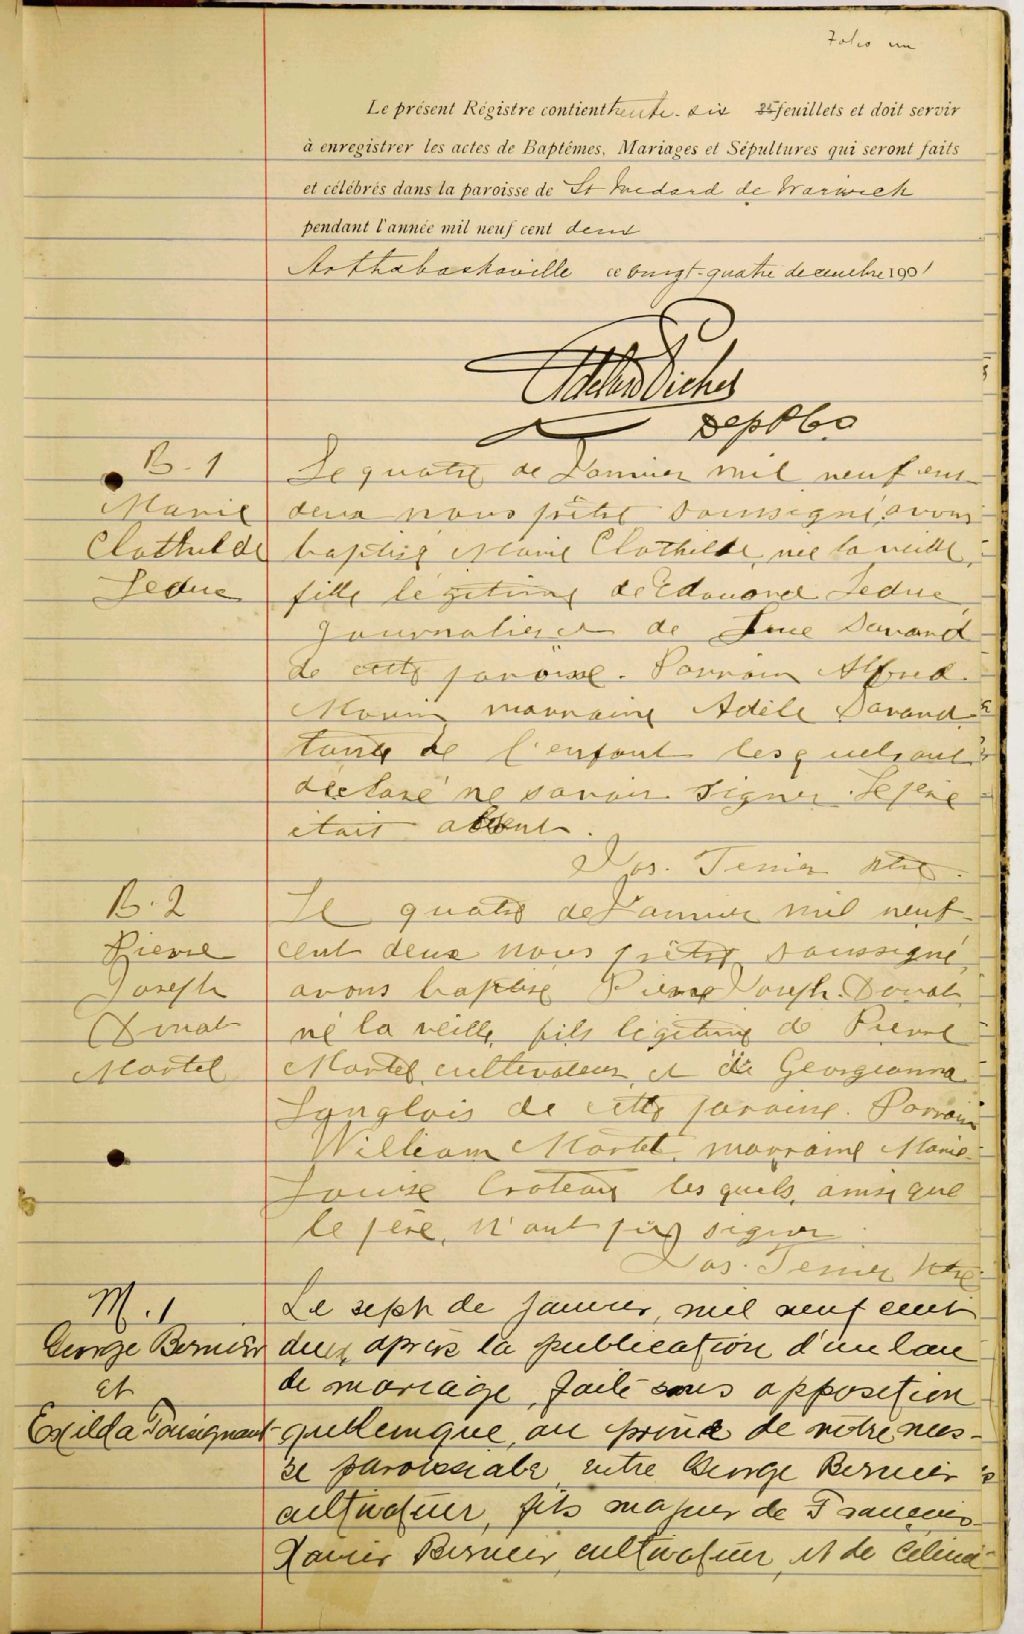 Folio un
Le présent Régistre contient trente-six 35 feuillets et doit servir
à enregistrer les actes de Baptêmes, Mariages et Sépultures qui seront faits
et célébrés dans la paroisse de St Medard de Warwick
pendant l'année mil neuf cent deux
Arthabaskaville ce vingt-quatre decembre 1901
Dep P C S
B. 1
Marie
Clothilde
Leduc
Le quatre de Janvier mil neuf cent
deux nous prêtre soussigné, avons
baptisé Marie Clothilde, née la veille,
fille légitime de Edouard Leduc,
journalier et de Savard
de cette paroisse. Parrain Alfred
Morin marraine Adèle Savard
tante de l'enfant lesquels ont
déclaré ne savoir signer. Le père
était absent.
Jos. Tessier ptre.
B. 2
Pierre
Joseph
Donat
Martel
Le quatre de Janvier mil neuf
cent deux nous prêtre soussigné,
avons baptisé Pierre Joseph Donat,
né la veille, fils légitime de Pierre
Martel, cultivateur et de Georgianna
Langlois de cette paroisse. Parrain
William Martel, marraine Marie-
Louise Croteau lesquels, ainsi que
le père, n'ont pu signer
Jos. Tessier ptre
M. 1
George Bernier
et
Exilda Tousignant
Le sept de Janvier, mil neuf cent
deux, après la publication d'un ban
de mariage, faite sans opposition
quelconque, au prône de notre mes-
se paroissiale, entre George Bernier
cultivateur, fils majeur de François-
Xavier Bernier, cultivateur, et de Célina